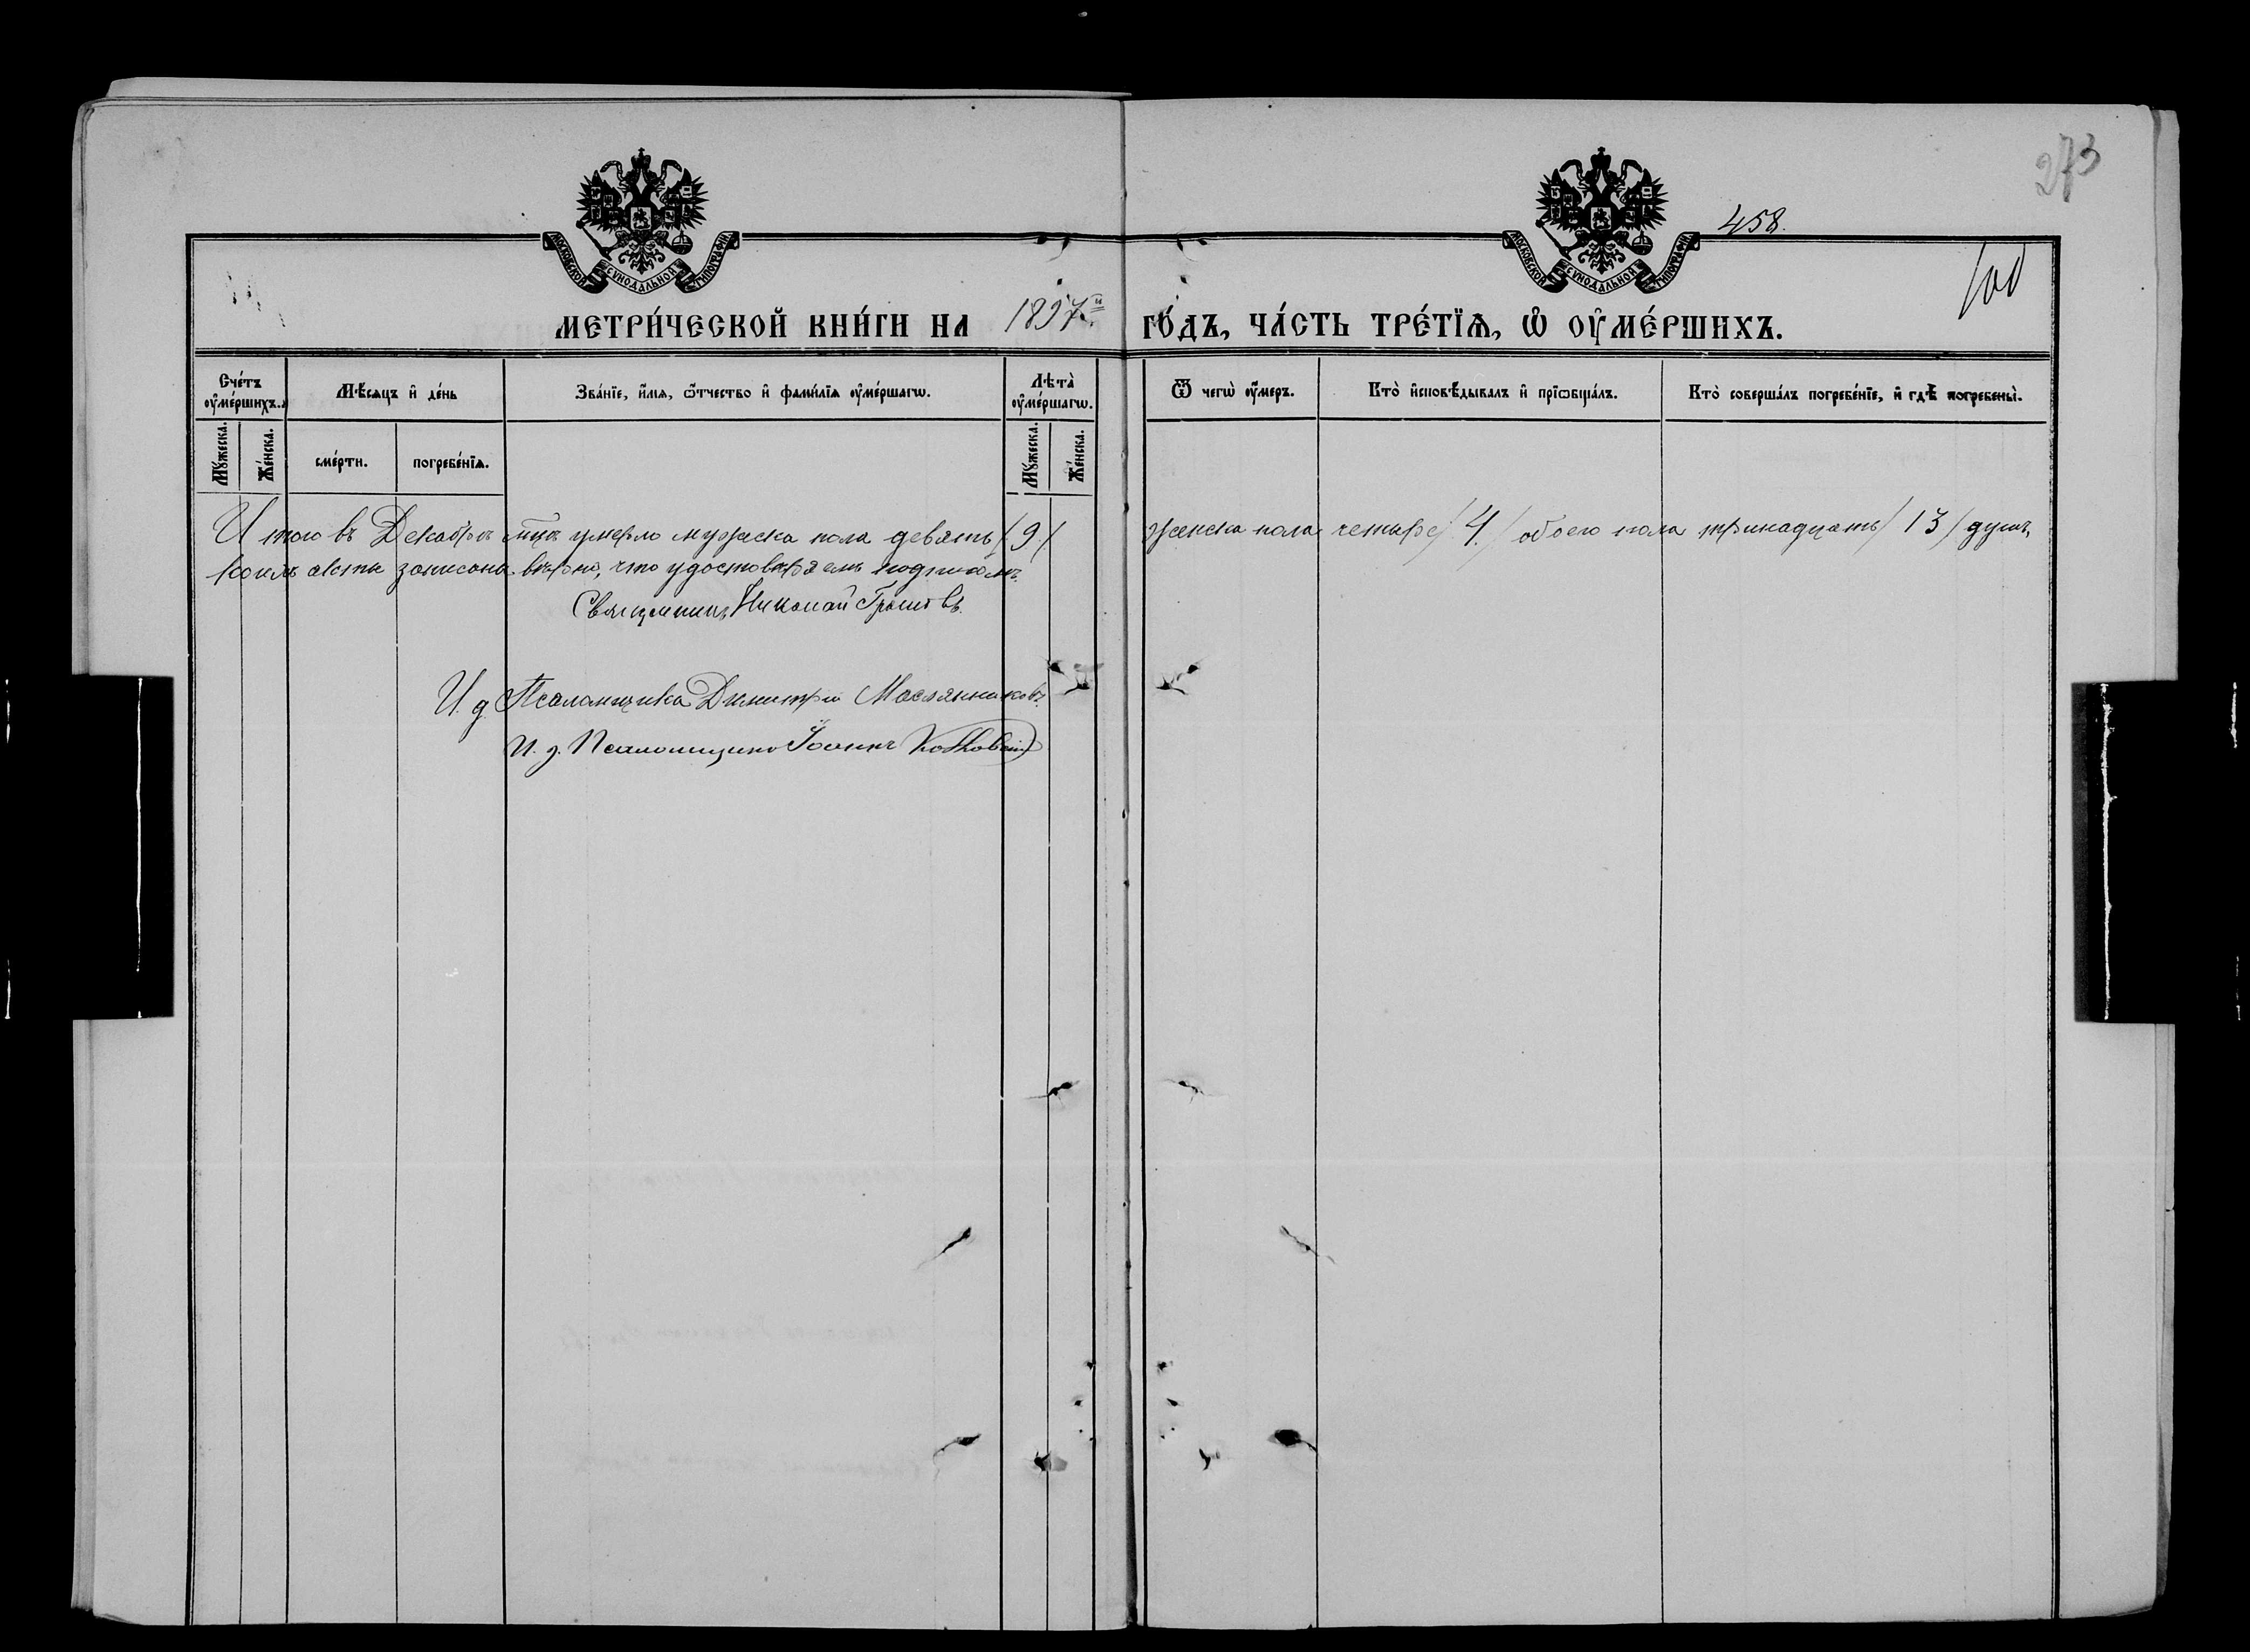 273
458.
100
МОСКОВСКОЙ СѴНОДАЛЬНОЙ ТИПОГРАФІИ.
МОСКОВСКОЙ СѴНОДАЛЬНОЙ ТИПОГРАФІИ.
МЕТРИ́ЧЕСКОЙ КНИ́ГИ НА 1897й. ГО́ДЪ, ЧА́СТЬ ТРЕ́ТЇѦ, Ѡ҆ ОУ҆МЕ́РШИХЪ.
Сче́тъ оу҆ме́ршихъ.
Мѣ́сѧцъ и҆ де́нь
Зва́нїе, и҆́мѧ, ѻ҆́тчество и҆ фами́лїѧ оу҆ме́ршагѡ.
Лѣта̀ оу҆ме́ршагѡ.
Ѿ чегѡ̀ оу҆́меръ.
Кто̀ и҆сповѣ́дывалъ и҆ прїѡбща́лъ.
Кто̀ соверша́лъ погребе́нїе, и҆ гдѣ̀ погребены̀.
Мꙋ́жеска.
Же́нска.
сме́рти.
погребе́нїѧ.
Мꙋ́жеска.
Же́нска.
Итого въ Декабрѣ мцѣ умерло мужеска пола девять /9./ женска пола четыре /4./ обоего пола тринадцать /13/ душъ,
записана вѣрно, что удостовѣряемъ подписомъ.
Священникъ Николай
И. д. Псаломщика Димитрій Маслянниковъ.
И. д. Псаломщика Іоаннъ